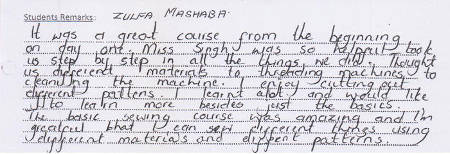 Students Remarks: ZULFA MASHABA.
It was a great course from the beginning
on day one. Miss Sngh was so helpful took
us step by step in all the things we did. Thought
us different materials to threading machines to
cleaning the machine. I enjoy cutting out
different pattens. I learnt alot and would like
to learn more besides just the basics.
The basic sewing course was amazing and I'm
greatful that I can sew different things using
different materials and different patterns.